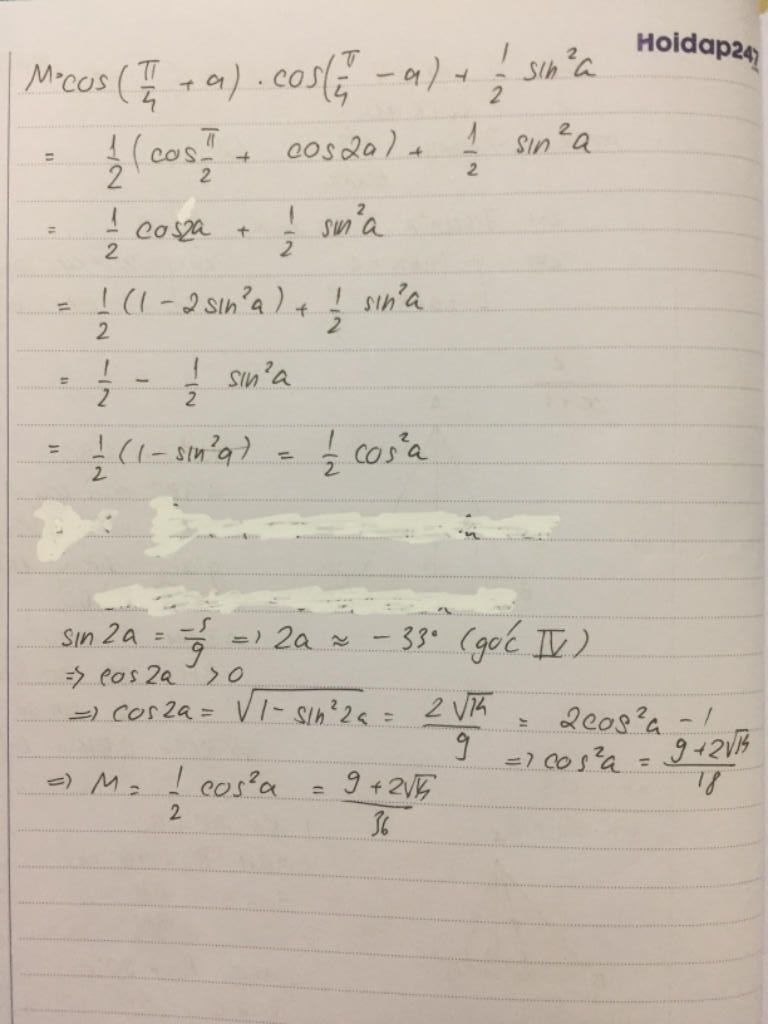 Hoidap247
M = cos(π/4 + a) . cos(π/4 - a) + 1/2 sin²a
= 1/2 (cos π/2 + cos2a) + 1/2 sin²a
= 1/2 cos2a + 1/2 sin²a
= 1/2 (1 - 2sin²a) + 1/2 sin²a
= 1/2 - 1/2 sin²a
= 1/2 (1 - sin²a) = 1/2 cos²a
sin 2a = -5/9 => 2a ≈ -33° (góc IV)
=> cos2a > 0
=> cos2a = √(1 - sin²2a) = 2√14/9 = 2cos²a - 1
=> cos²a = (9 + 2√14)/18
=> M = 1/2 cos²a = (9 + 2√14)/36